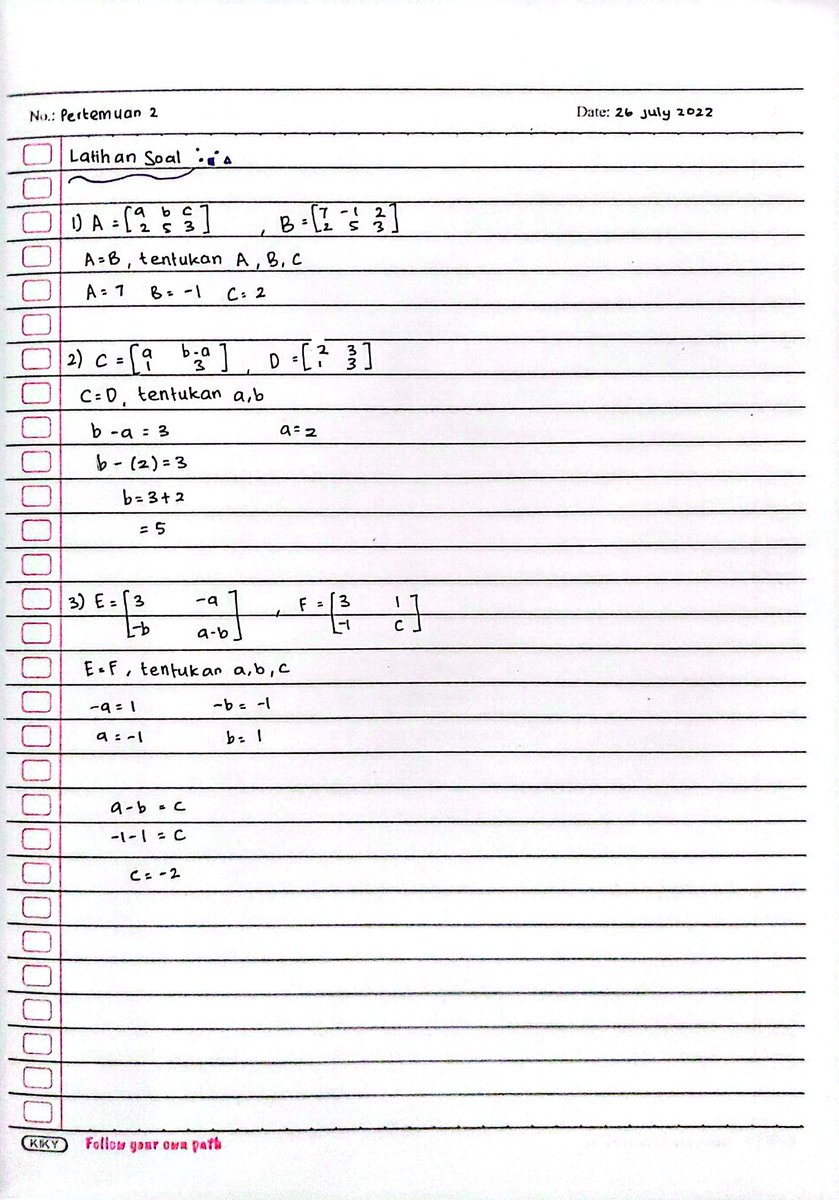 No.: Pertemuan 2 Date: 26 July 2022
Latihan Soal
1) A = [a b c , B = [7 -1 2
2 5 3] 2 5 3]
A=B, tentukan A, B, C
A= 7 B= -1 C= 2
2) C = [a b-a , D = [2 3
1 3] 1 3]
C=D, tentukan a,b
b-a = 3 a=2
b-(2)=3
b=3+2
=5
3) E = [3 -a , F = [3 1
-b a-b] -1 C]
E=F, tentukan a,b,c
-a=1 -b= -1
a=-1 b= 1
a-b = C
-1-1 = C
C= -2
KIKY Follow your own path